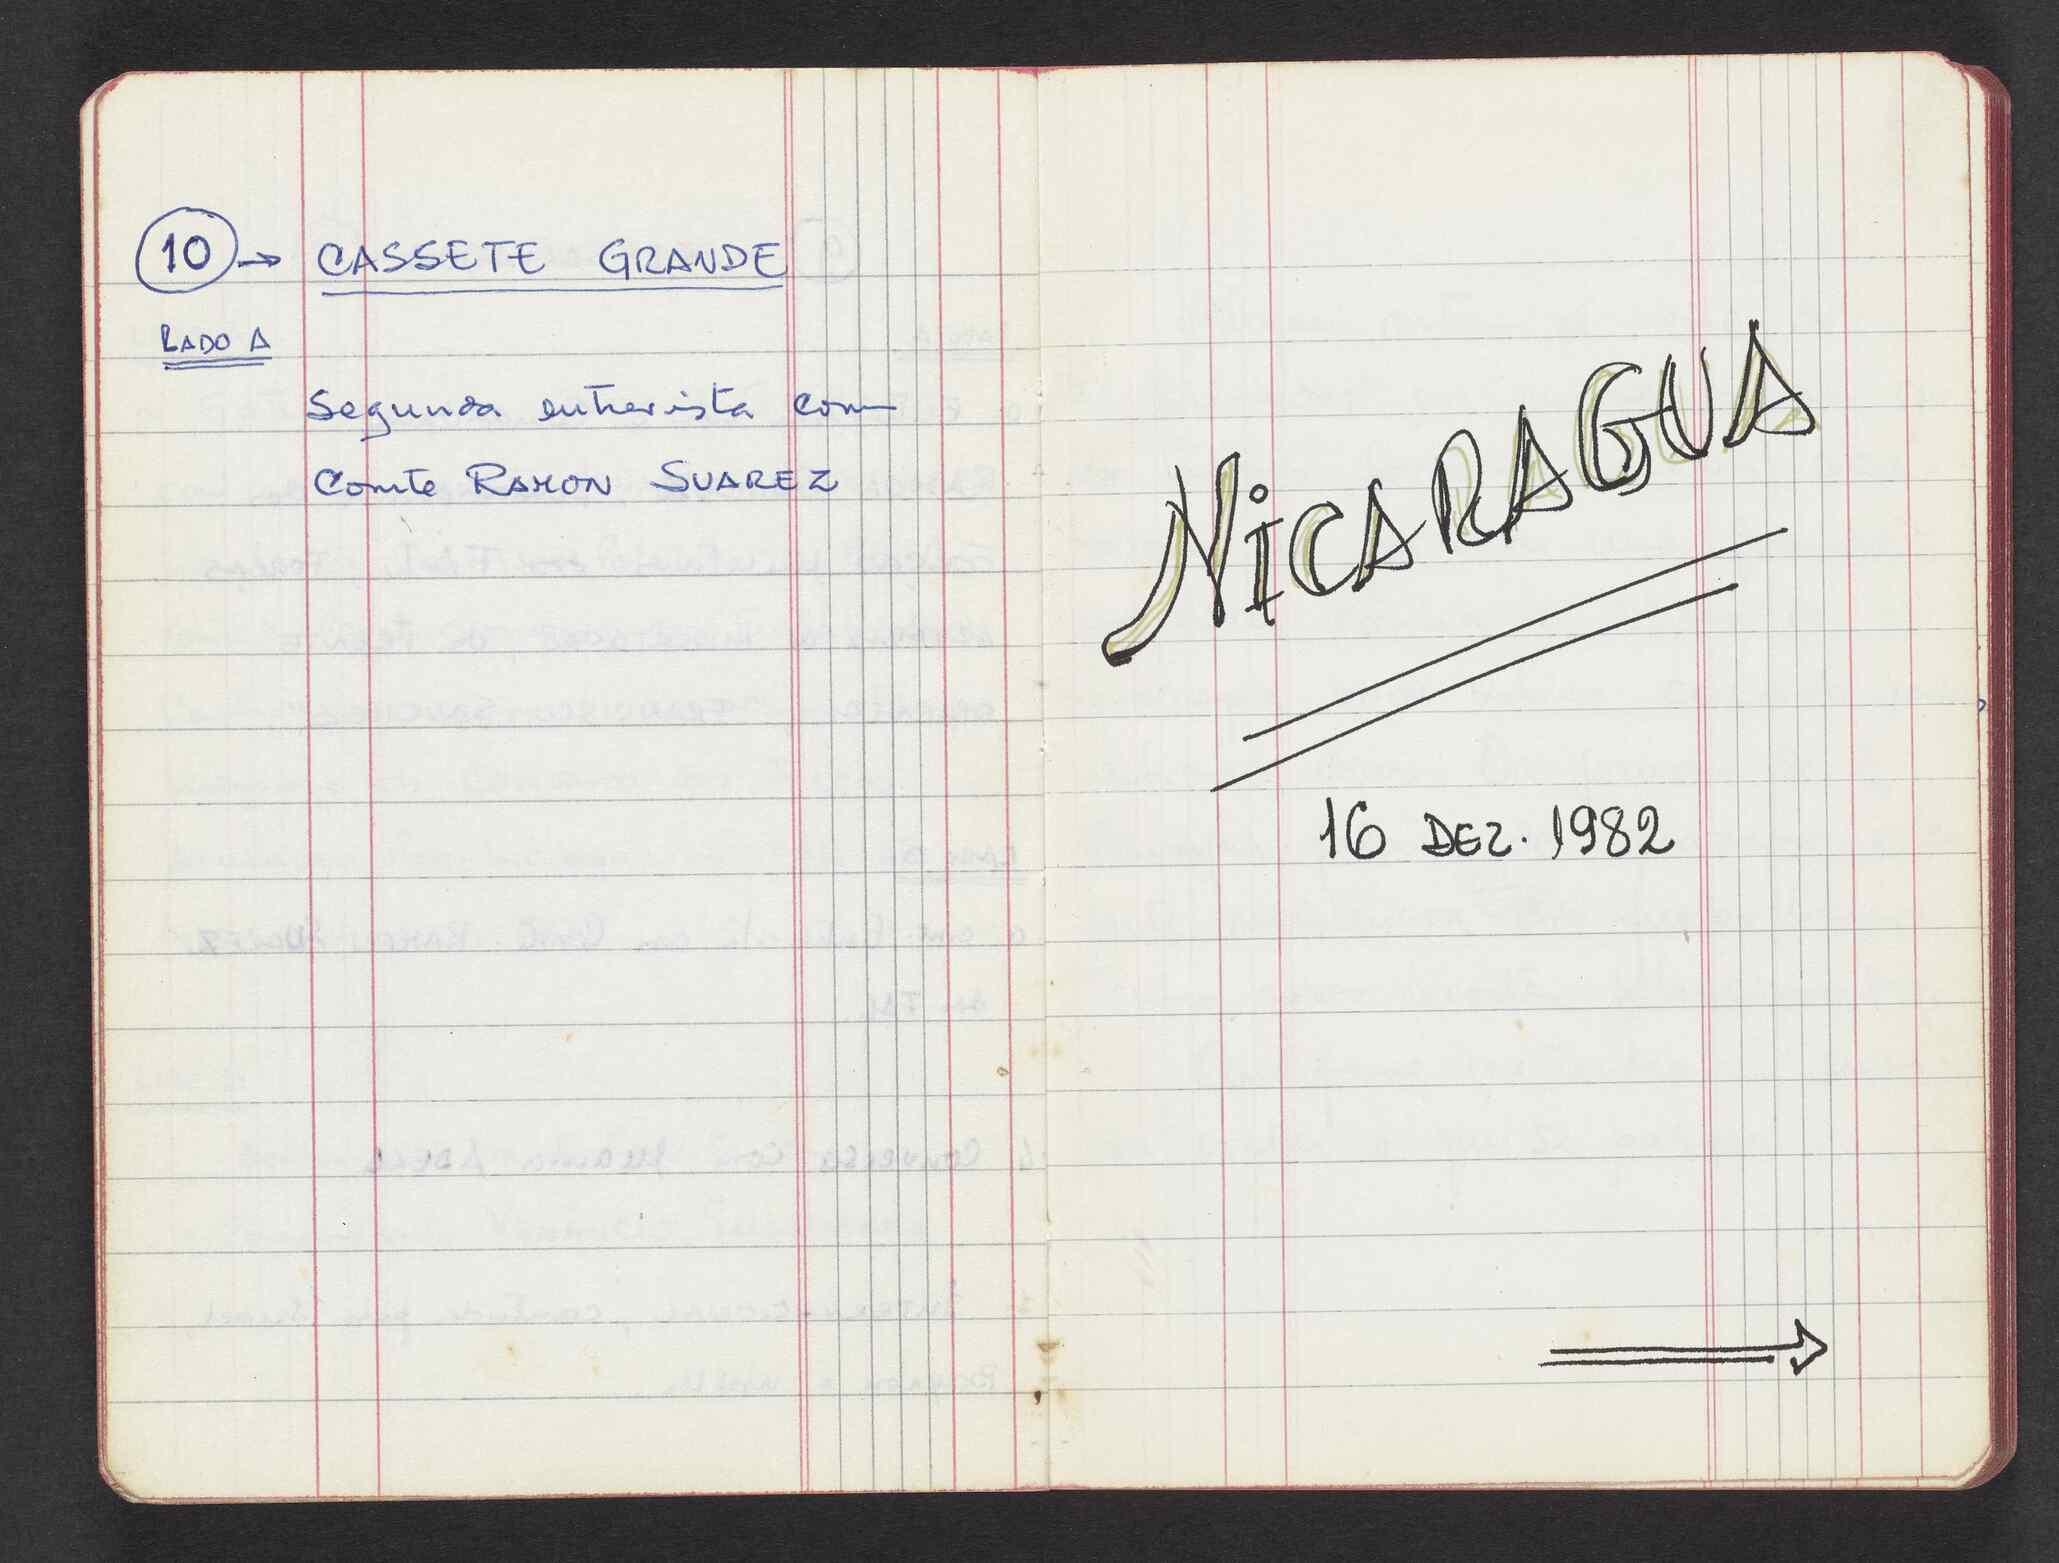 10 → CASSETE GRANDE
LADO A
Segunda entrevista com
Comte RAMON SUAREZ
NICARAGUA
16 DEZ. 1982